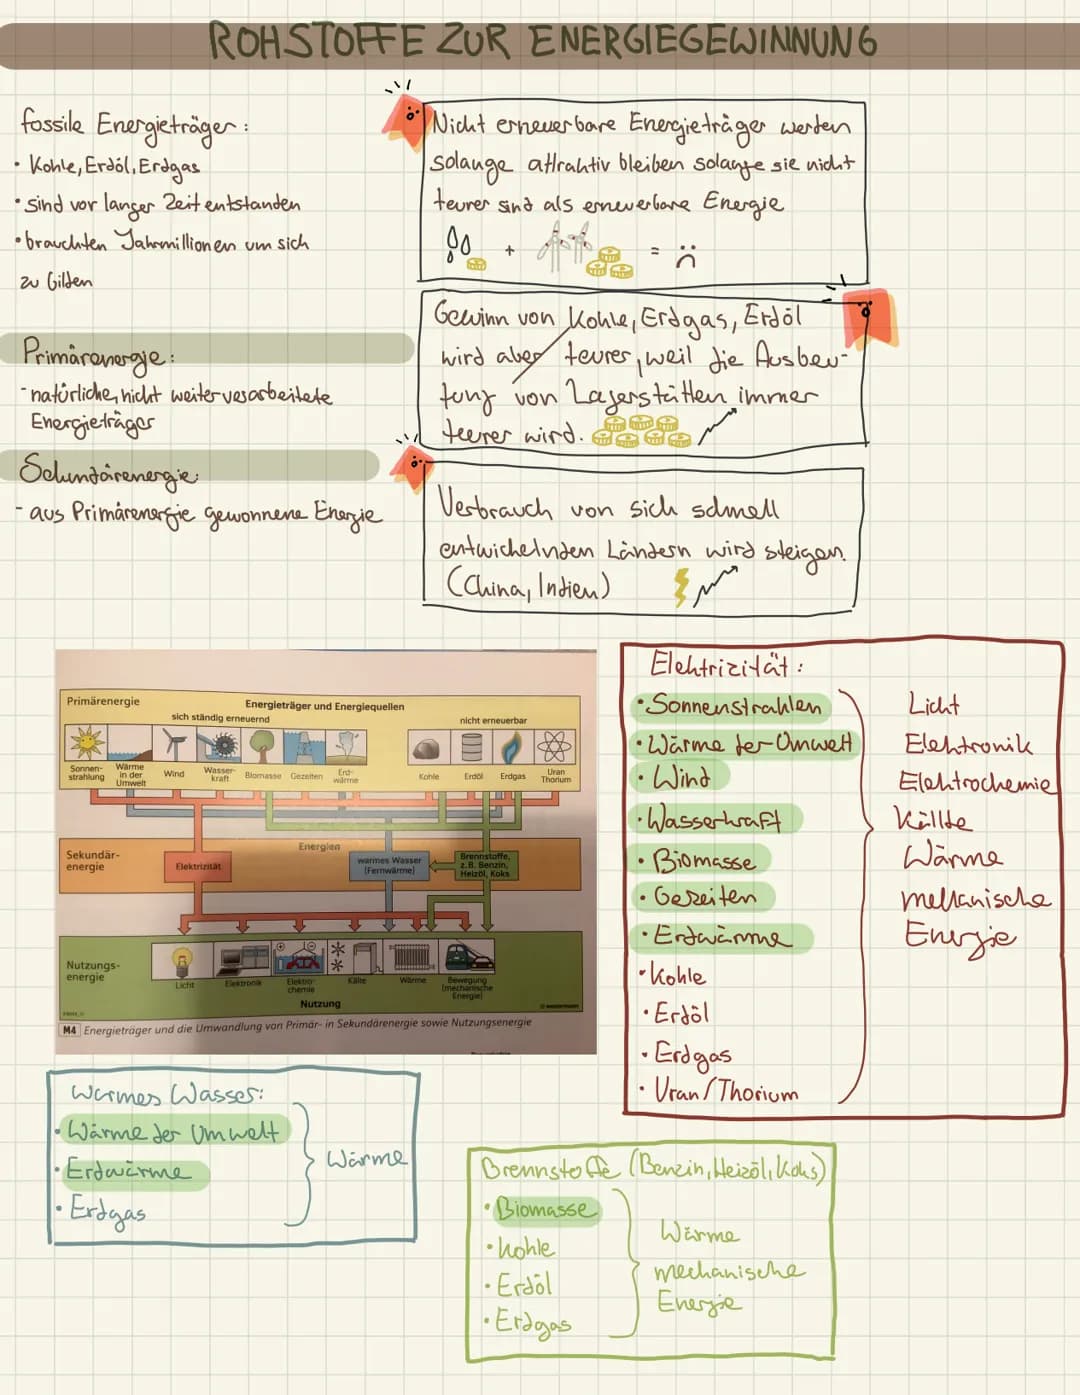 ROHSTOFFE ZUR ENERGIEGEWINNUNG
fossile Energieträger:
• Kohle, Erdöl, Erdgas
• sind vor langer Zeit entstanden
• brauchten Jahrmillionen um sich
zu bilden
Primärenergie:
- natürliche, nicht weiterverarbeitete
Energieträger
Sekundärenergie:
- aus Primärenergie gewonnene Energie
Nicht erneuerbare Energieträger werden
solange attraktiv bleiben solange sie nicht
teurer sind als erneuerbare Energie
+ =
Gewinn von Kohle, Erdgas, Erdöl
wird aber teurer, weil die Ausbeu-
tung von Lagerstätten immer
teurer wird.
Verbrauch von sich schnell
entwickelnden Ländern wird steigen.
(China, Indien)
Primärenergie
Energieträger und Energiequellen
sich ständig erneuernd
nicht erneuerbar
Sonnen-
strahlung
Wärme
in der
Umwelt
Wind
Wasser-
kraft
Biomasse
Gezeiten
Erd-
wärme
Kohle
Erdöl
Erdgas
Uran
Thorium
Sekundär-
energie
Energien
Elektrizität
warmes Wasser
(Fernwärme)
Brennstoffe,
z.B. Benzin,
Heizöl, Koks
Nutzungs-
energie
Licht
Elektronik
Elektro-
chemie
Kälte
Wärme
Bewegung
(mechanische
Energie)
Nutzung
© westermann
M4 Energieträger und die Umwandlung von Primär- in Sekundärenergie sowie Nutzungsenergie
Elektrizität:
• Sonnenstrahlen
• Wärme der Umwelt
• Wind
• Wasserkraft
• Biomasse
• Gezeiten
• Erdwärme
• Kohle
• Erdöl
• Erdgas
• Uran/Thorium
Licht
Elektronik
Elektrochemie
Källte
Wärme
mechanische
Energie
Warmes Wasser:
• Wärme der Umwelt
• Erdwärme
• Erdgas
Wärme
Brennstoffe (Benzin, Heizöl, Koks)
• Biomasse
• Kohle
• Erdöl
• Erdgas
Wärme
mechanische
Energie